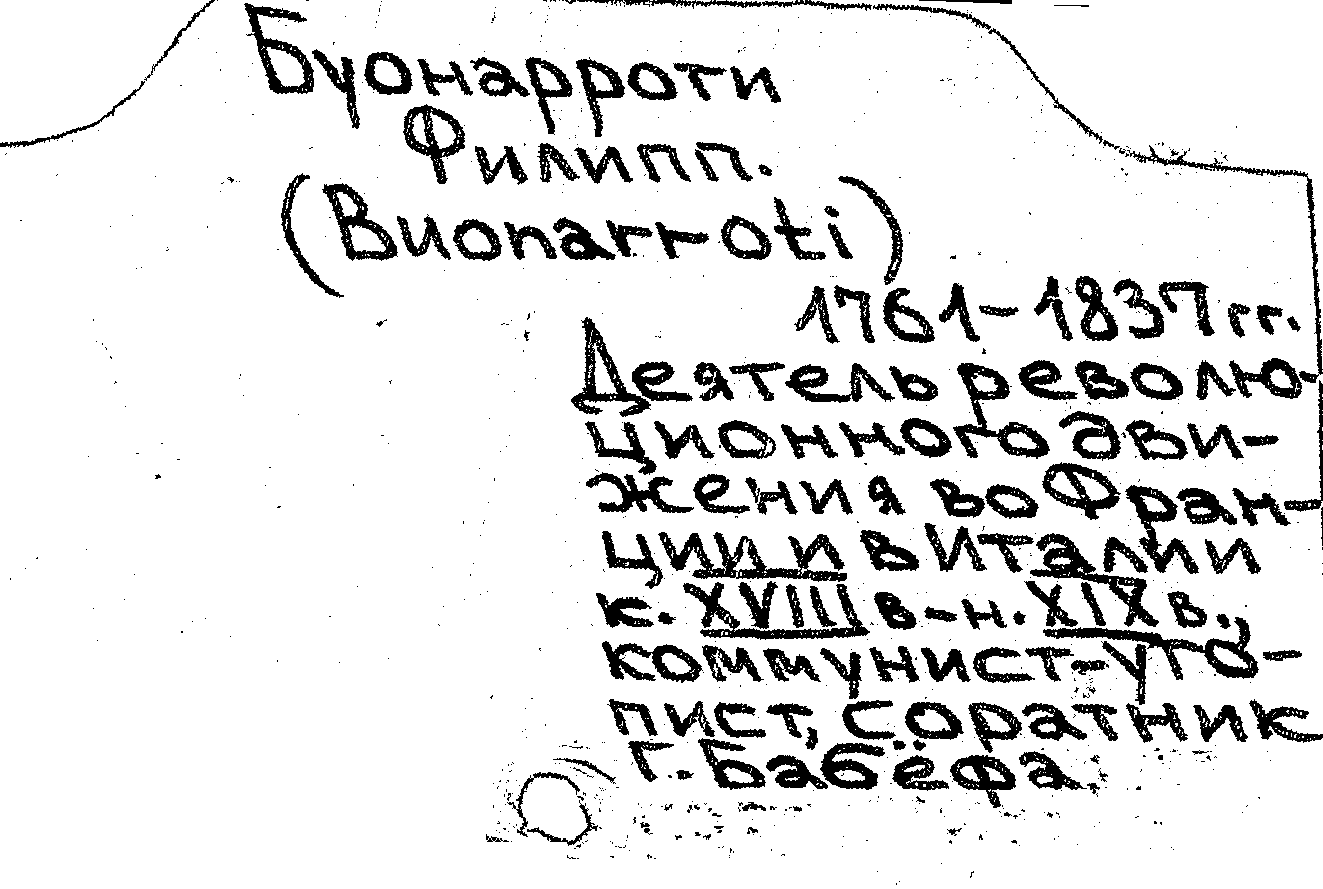 Буонарроти
Филипп.
(Buonarroti)
1761-1837 гг.
Деятель револю-
ционного дви-
жения во Фран-
ции и в Италии
к. XVIII в-н. XIX в.,
коммунист-уто-
пист, соратник
Г. Бабёфа.